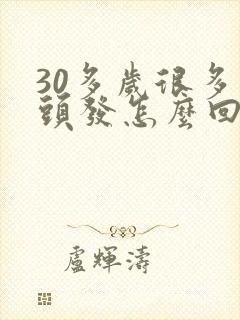 30多歲很多
頭發怎麼回
盧輝濤